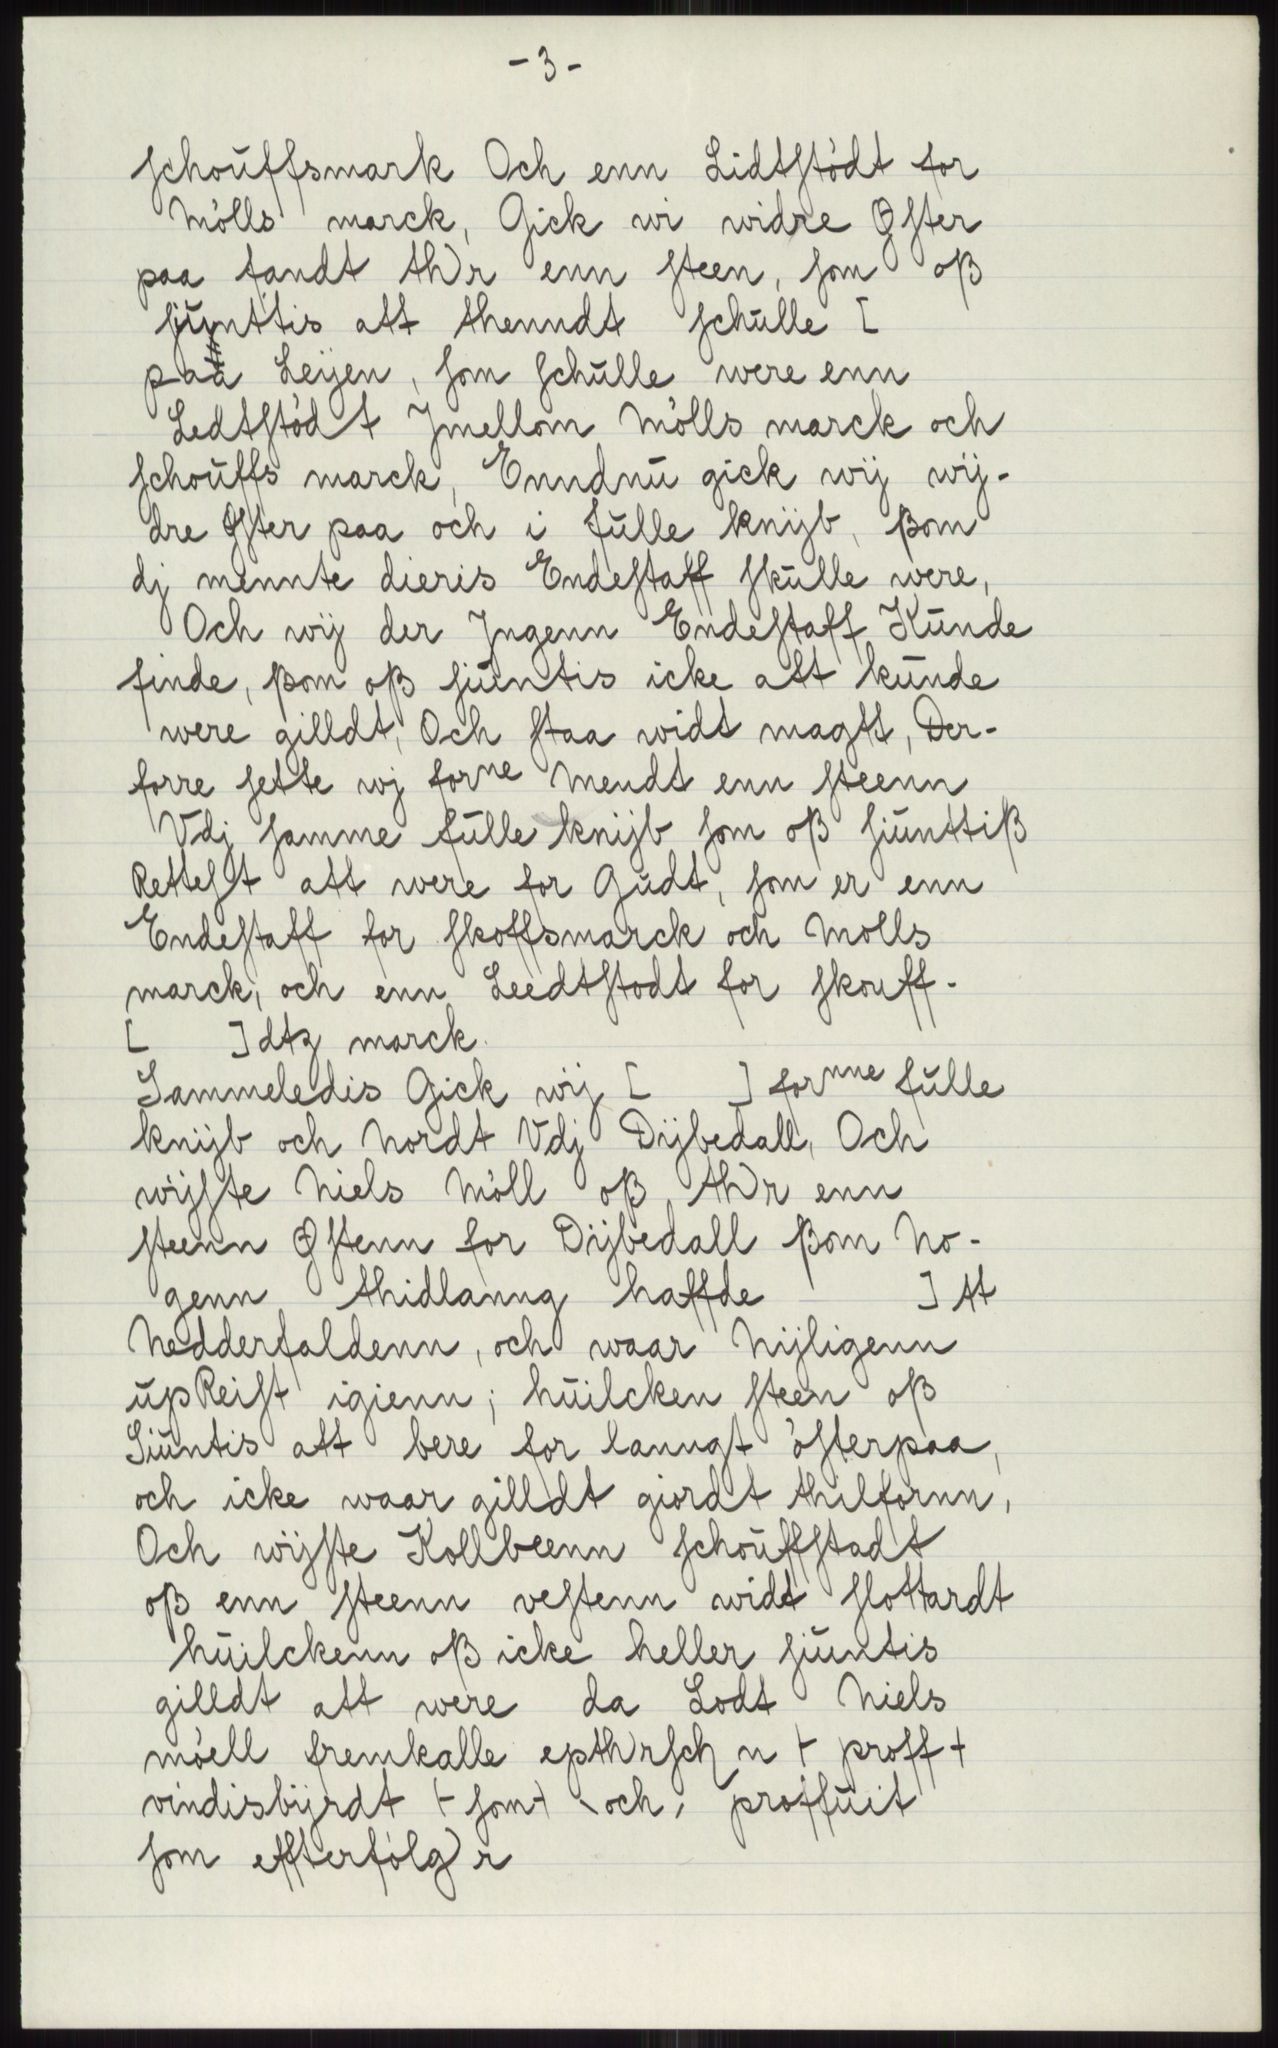 - 3 -
schouffsmark Och enn Lidtstödt for
Mölls marck, Gick wi widre Øster
paa fandt th)r enn steen, som oß
siunttis att thenndt schulle [
paa Leijen, som schulle were enn
Ledtstödt Jmellom Mölls marck och
schouffs marck, Enndnu gick wij wij-
dre Øster paa och i fulle knijb, ßom
dj mennte dieris Endestaff skulle were,
Och wij der Jngenn Endestaff Kunde
finde, ßom oß siuntis icke att kunde
were gilldt, Och staa widt magtt, Der-
forre sette wj forne Mendt enn steenn
Vdj samme fulle knijb som oß siunttiß
Rettest att were for Gudt, som er enn
Endestaff for skoffsmarck och Molls
marck, och enn Leedtstodt for skouff-
[ ] dtz marck.
Sammeledis Gick wij [ ] fornne fulle
knijb och Nordt Vdj Dijbedall, Och
wijste Niels Möll oß, th)r enn
steenn Østenn for Dijbedall ßom No-
genn thidlanng haffde ] tt
Nedderfaldenn, och waar Nijligenn
upReist igienn; huilcken steen oß
Siuntis att bere for lanngt österpaa,
och icke waar gilldt giordt thilfornn,
Och wijste Kollbeenn schouffstadt
oß enn steenn vestenn widt slottardt
huilckenn oß icke heller siuntis
gilldt att were da Lodt Niels
möell fremkalle epth)rsch n + proff +
vindisbijrdt + som + \ och, proffuit
som effterfölg)r